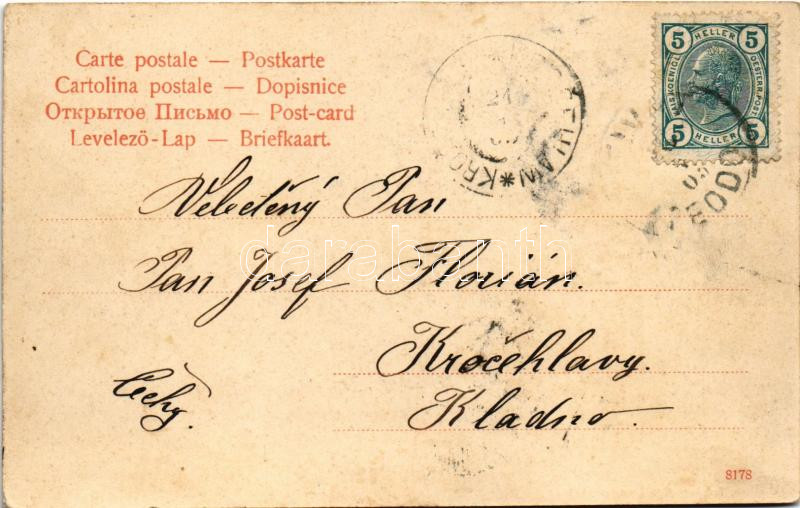 Carte postale — Postkarte
Cartolina postale — Dopisnice
Открытое Письмо — Post-card
Levelező-Lap — Briefkaart.
5 HELLER 5
KAIS. KOENIGL. OESTERR. POST
5 HELLER 5
Velectěný Pan
Pan Josef Florián.
Kročehlavy.
Čechy.
Kladno.
darabanth
8178